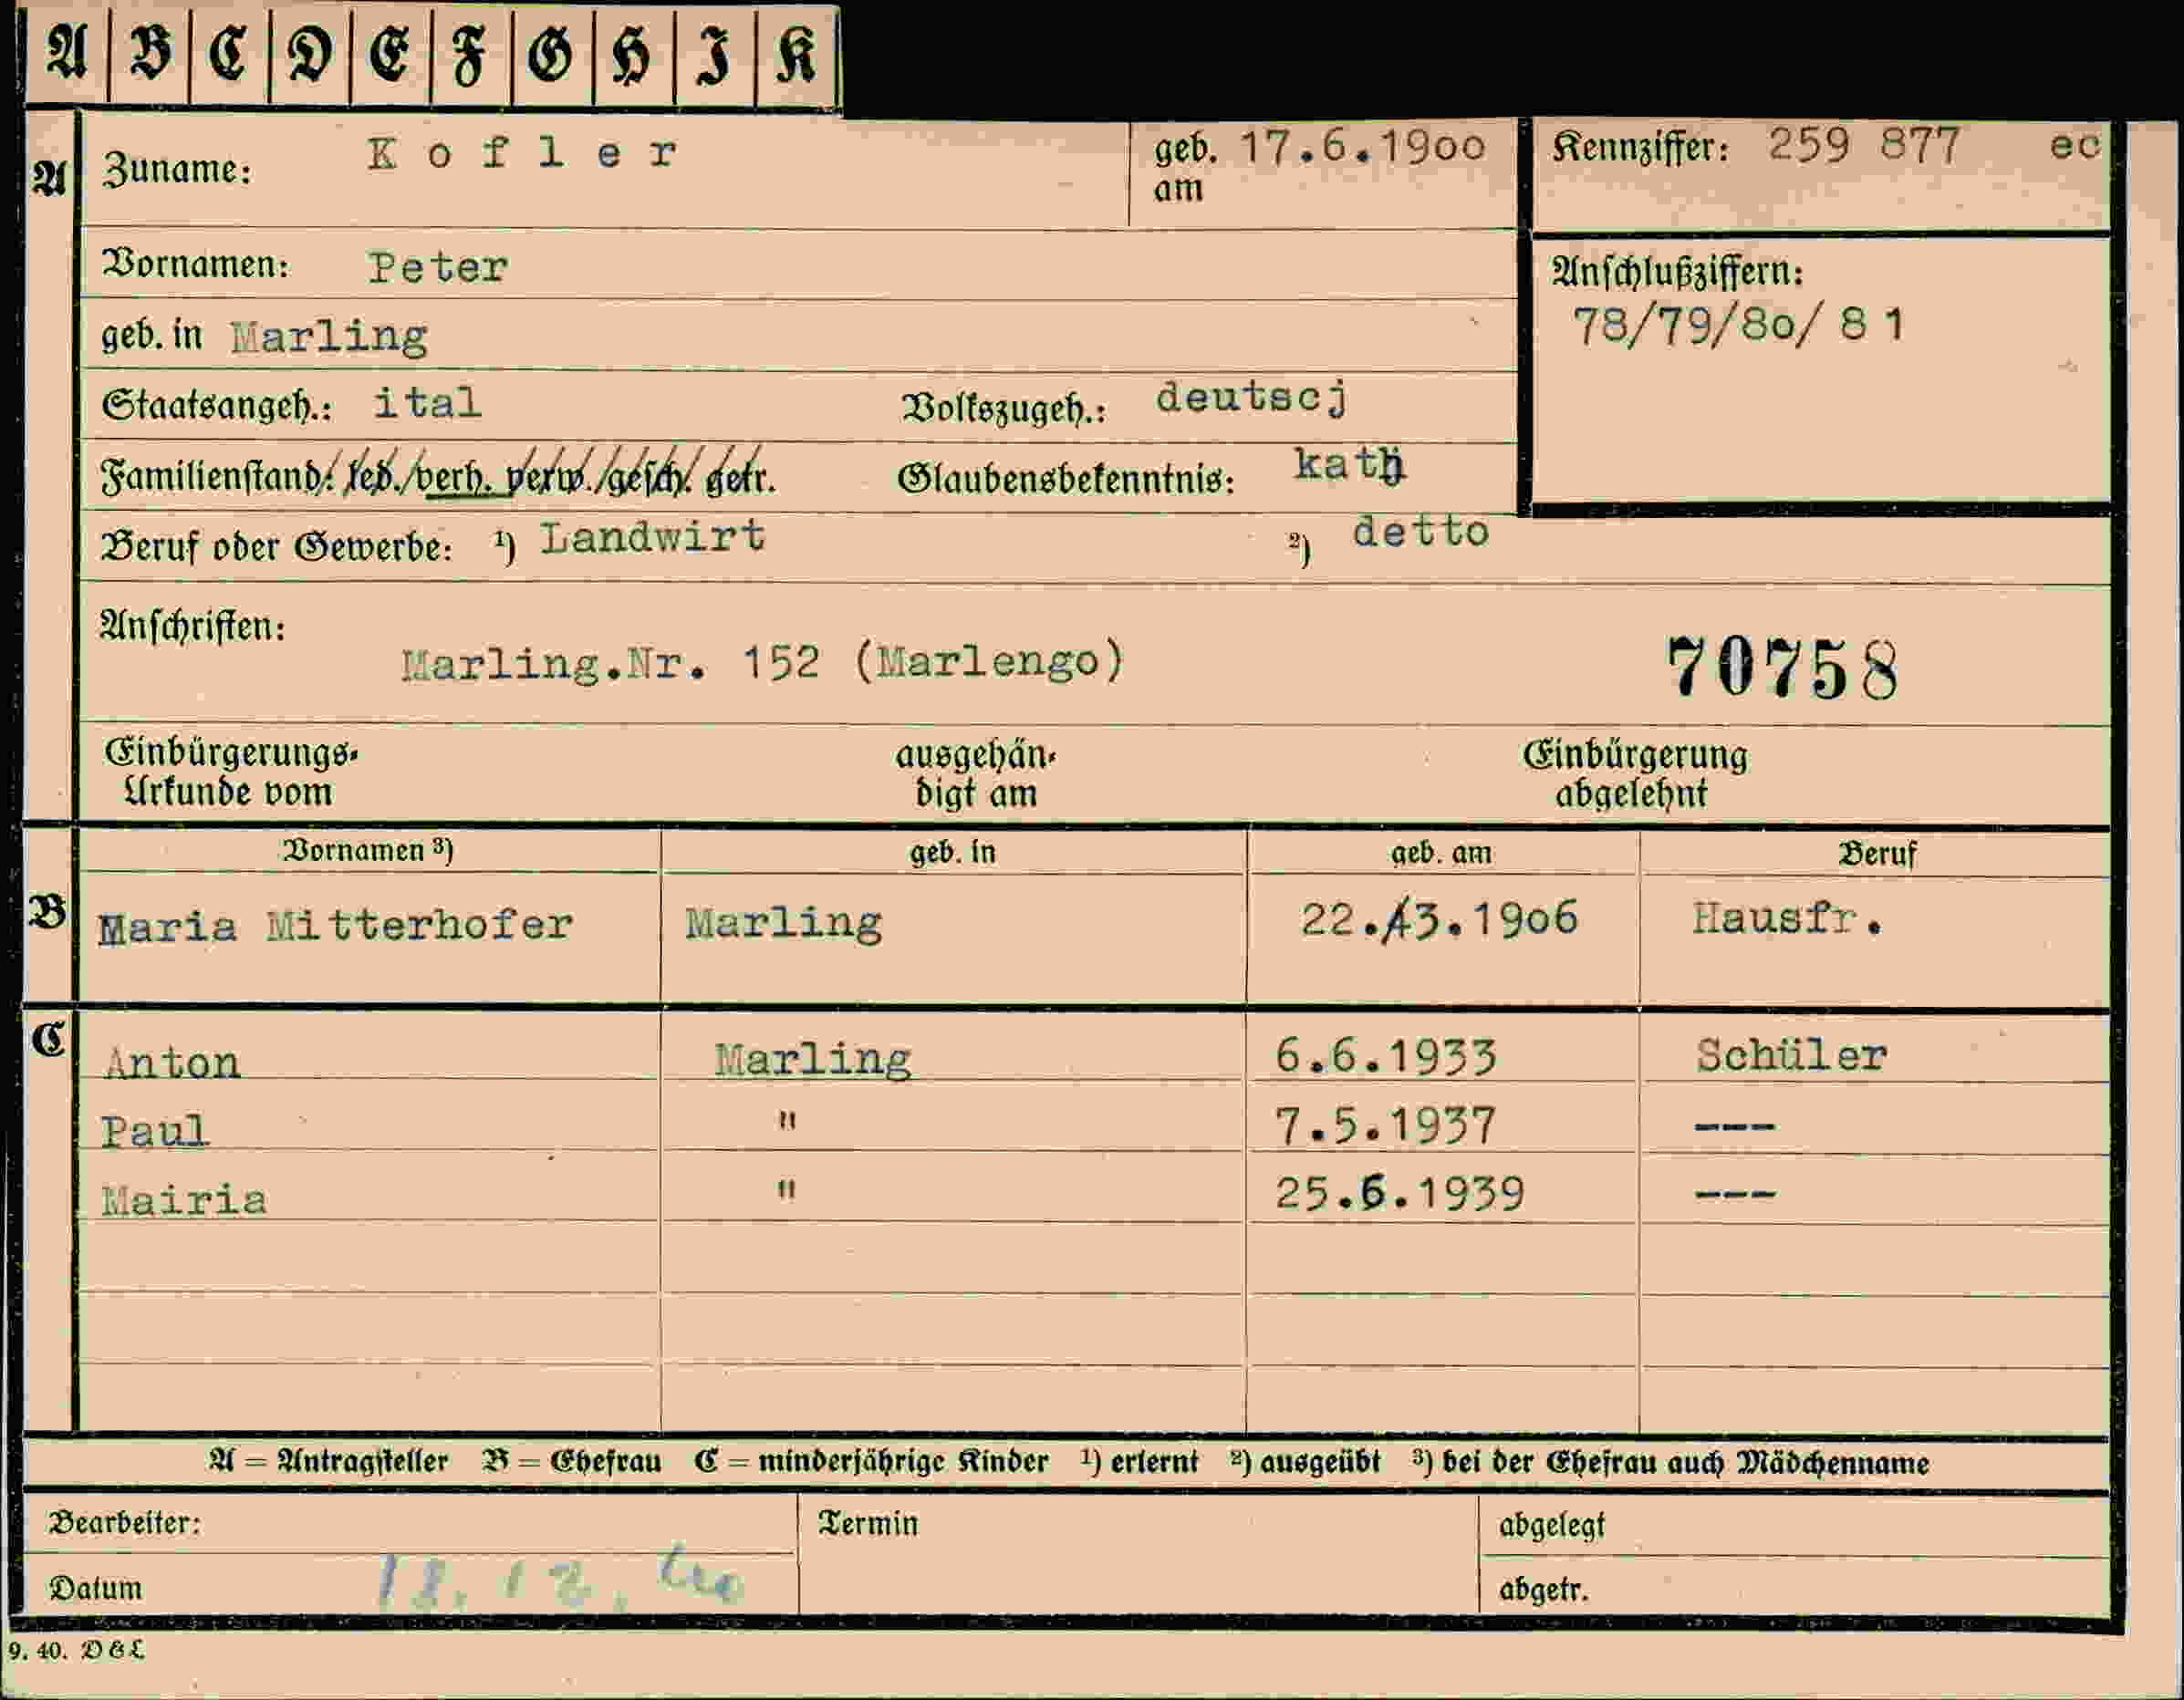 A B C D E F G H J K
A Zuname: Kofler geb. am 17.6.1900 Kennziffer: 259 877 ec
Vornamen: Peter
Anschlußziffern:
78/79/80/ 81
geb. in Marling
Staatsangeh.: ital Volkszugeh.: deutscj
Familienstand: led. verh. verw. gesch. getr. Glaubensbekenntnis: kath
Beruf oder Gewerbe: 1) Landwirt 2) detto
Anschriften:
Marling.Nr. 152 (Marlengo) 70758
Einbürgerungs-Urkunde vom ausgehändigt am Einbürgerung abgelehnt
Vornamen 3) geb. in geb. am Beruf
B Maria Mitterhofer Marling 22.3.1906 Hausfr.
C Anton Marling 6.6.1933 Schüler
Paul " 7.5.1937 ---
Mairia " 25.6.1939 ---
A = Antragsteller B = Ehefrau C = minderjährige Kinder 1) erlernt 2) ausgeübt 3) bei der Ehefrau auch Mädchenname
Bearbeiter: Termin abgelegt
Datum 12.40 abgetr.
9. 40. D&L